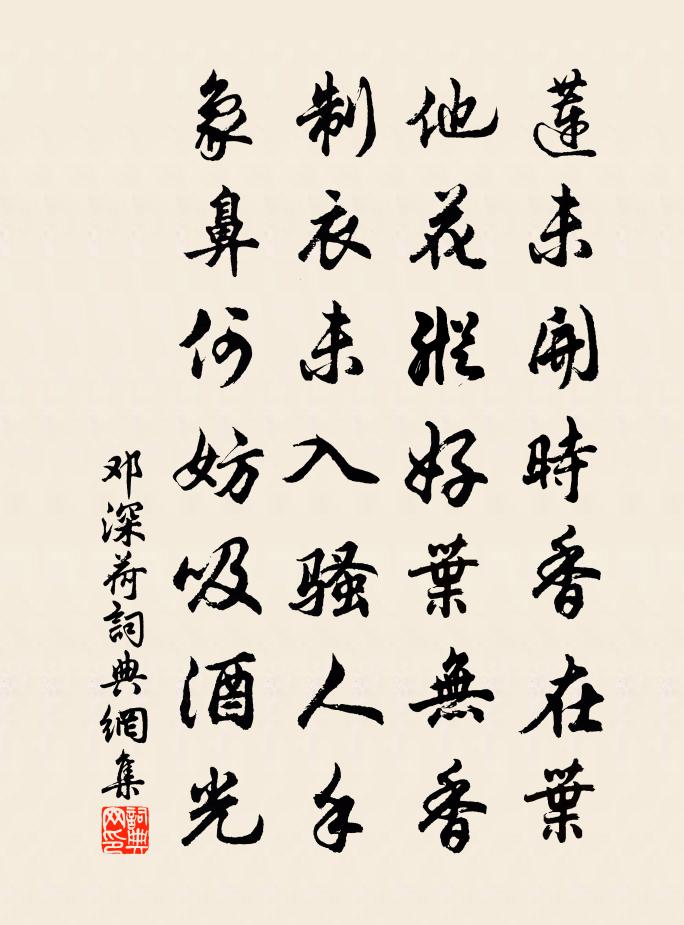 蓮未開時香在葉
他花縱好葉無香
制衣未入骚人手
象鼻何妨吸酒光
邓深荷詞典網集
詞典
网印